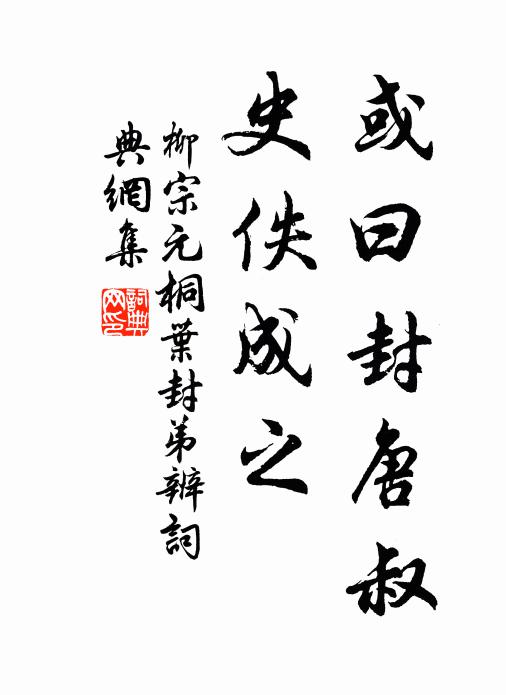 或曰封唐叔
史佚成之
柳宗元桐葉封弟辨詞
典網集
詞典
网印